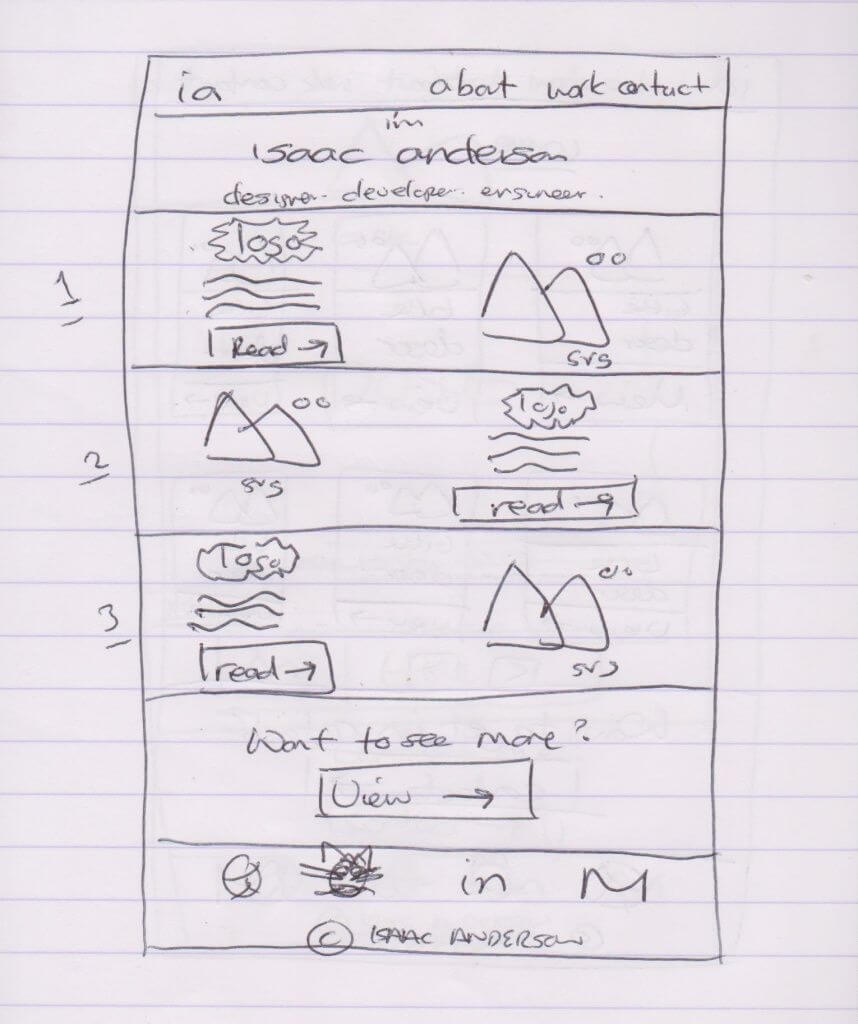 ia about work contact
im
isaac anderson
designer. developer. engineer.
logo
1
Read →
svg
logo
2
svg
read →
Logo
3
read →
svg
Want to see more?
View →
in M
© ISAAC ANDERSON